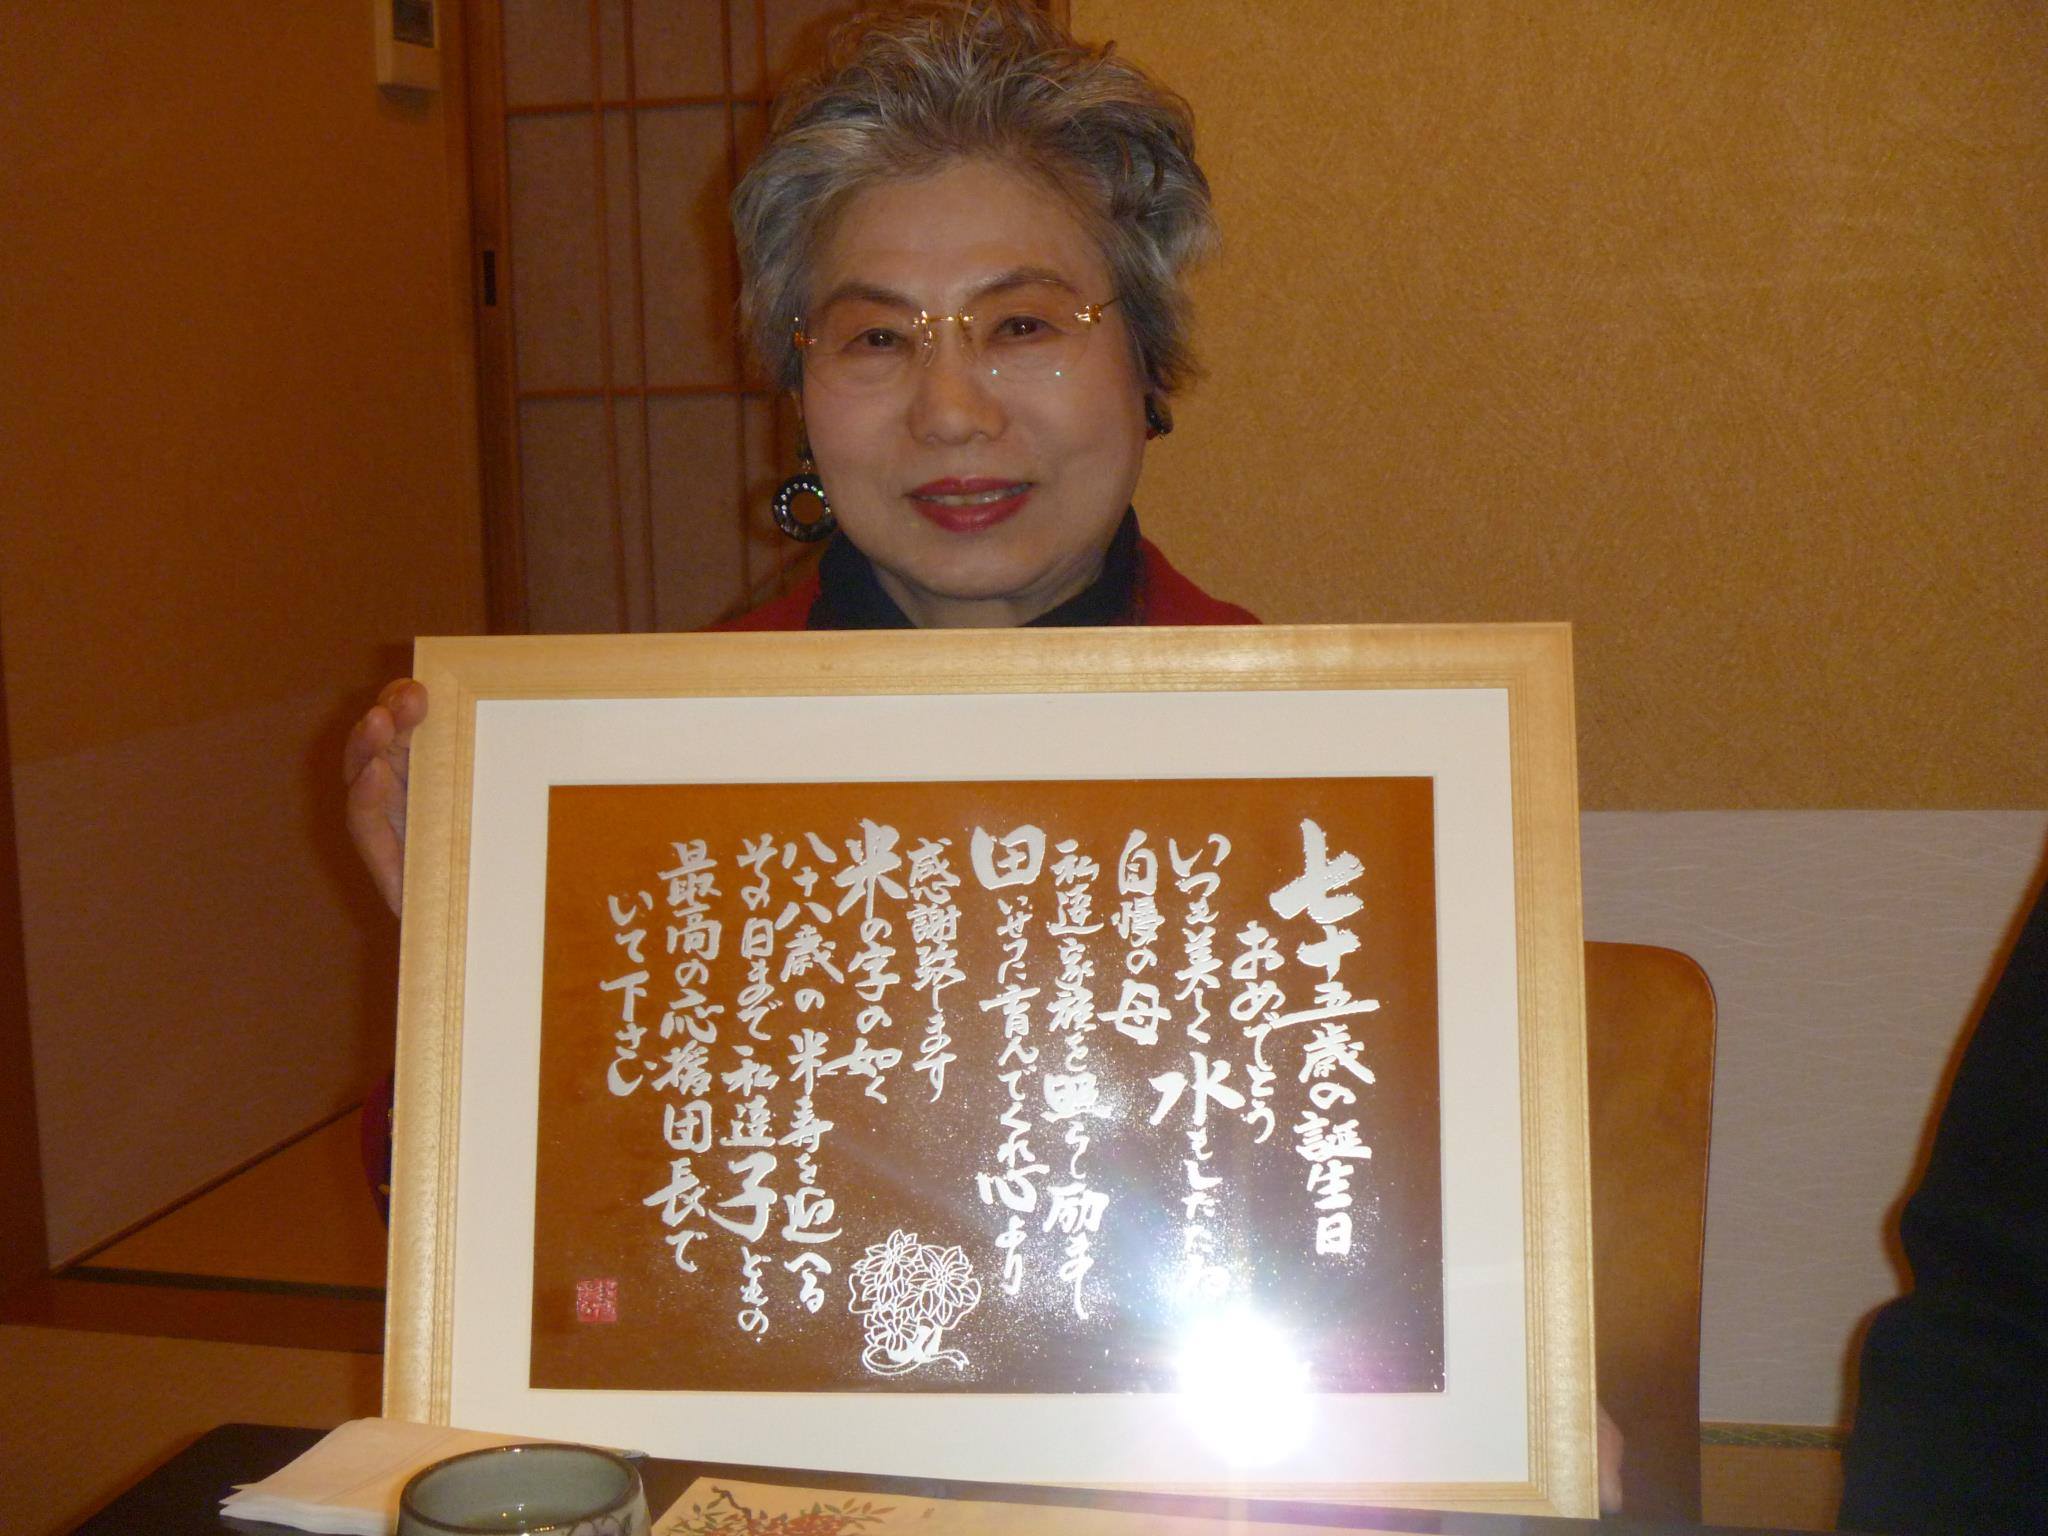 七十五歳の誕生日
おめでとう
いつも美しく水もしたたる
自慢の母
私達家族を照らし励まし
田いせつに育んでくれ心より
感謝致します
米の字の如く
八十八歳の米寿を迎へる
その日まで私達子どもの
最高の応援団長で
いて下さい